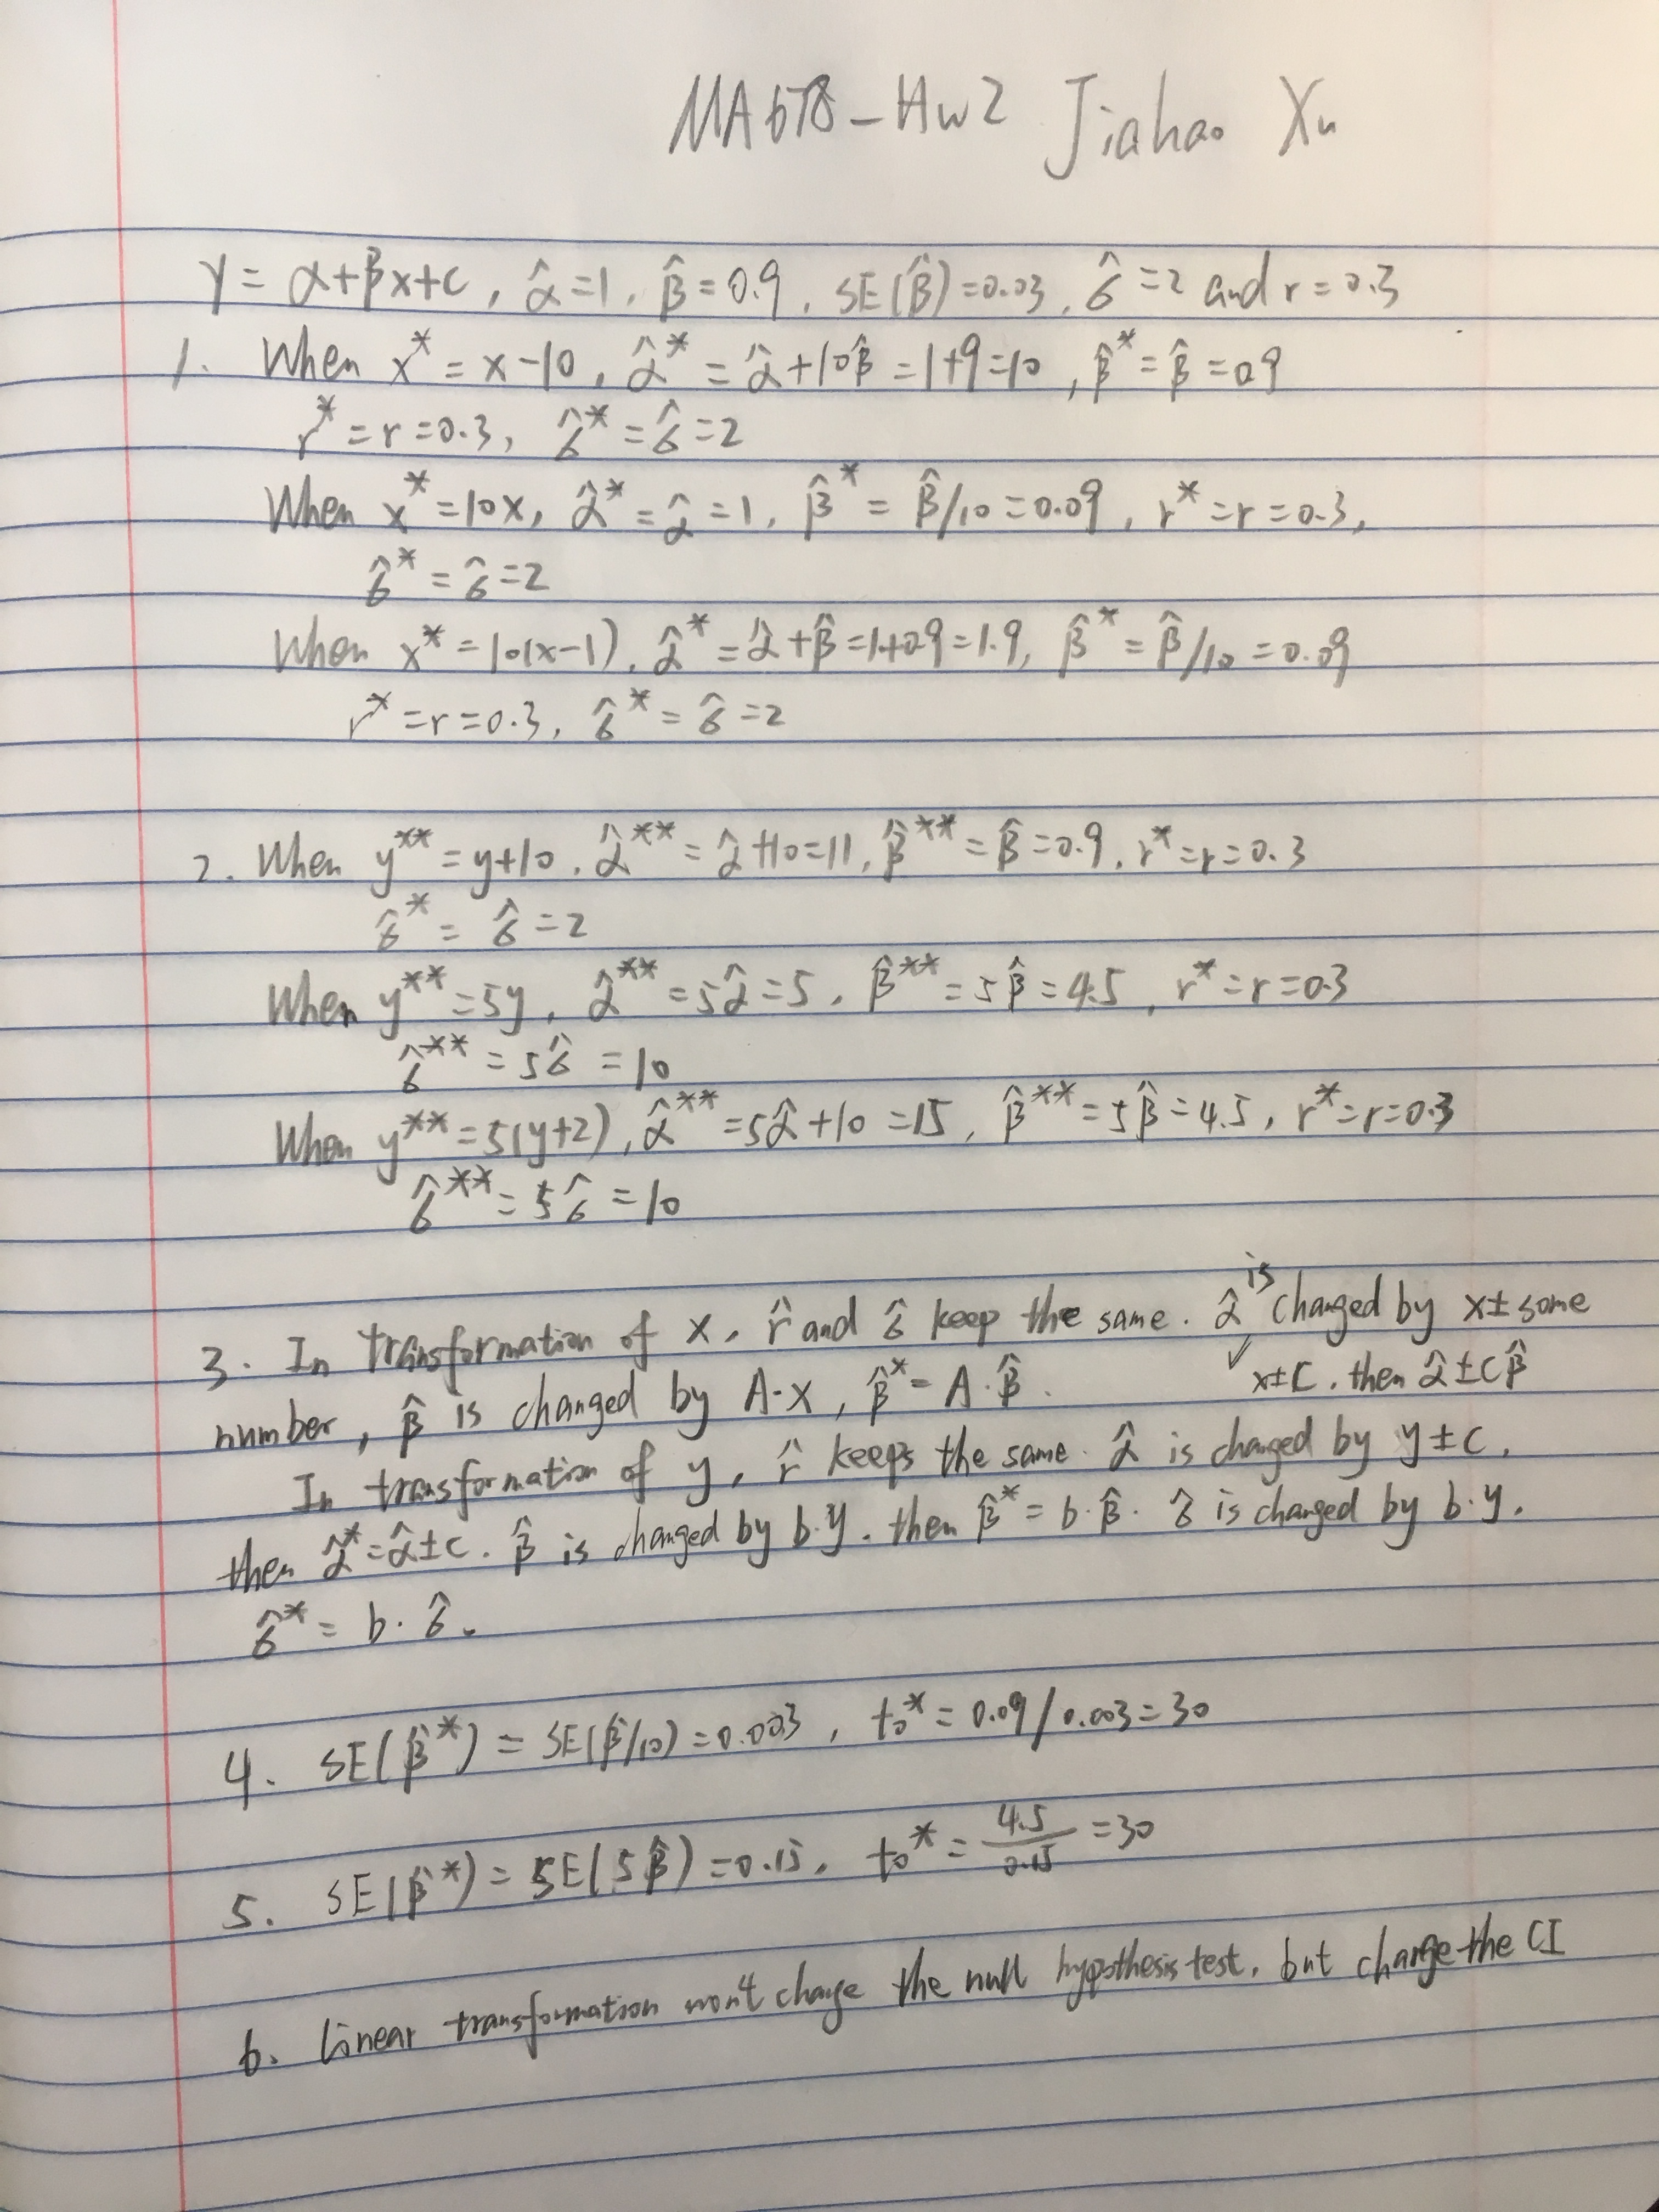 MA678-Hw2 Jiahao Xu
Y = α+βx+ε, α̂=1, β̂=0.9, SE(β̂)=0.03, σ̂=2 and r=0.3
1. When x* = x-10, α̂* = α̂+10β̂ =1+9=10, β̂*=β̂=0.9
r*=r=0.3, σ̂*=σ̂=2
When x*=10x, α̂*=α̂=1, β̂*= β̂/10=0.09, r*=r=0.3,
σ̂*=σ̂=2
When x*=10(x-1), α̂*=α̂+β̂=1+0.9=1.9, β̂*=β̂/10=0.09
r*=r=0.3, σ̂*=σ̂=2
2. When y**=y+10, α̂**=α̂+10=11, β̂**=β̂=0.9, r*=r=0.3
σ̂*= σ̂=2
When y**=5y, α̂**=5α̂=5, β̂**=5β̂=4.5, r*=r=0.3
σ̂**=5σ̂=10
When y**=5(y+2), α̂**=5α̂+10=15, β̂**=5β̂=4.5, r*=r=0.3
σ̂**=5σ̂=10
3. In transformation of x, r̂ and σ̂ keep the same. α̂ is changed by x± some
number, β̂ is changed by A·x, β̂*=A·β̂. x±C, then α̂±cβ̂
In transformation of y, r̂ keeps the same. α̂ is changed by y±c,
then α̂*=α̂±c. β̂ is changed by b·y. then β̂*=b·β̂. σ̂ is changed by b·y.
σ̂*= b·σ̂.
4. SE(β̂*)= SE(β̂/10)=0.003, t₀*=0.09/0.003=30
5. SE(β̂*)=SE(5β̂)=0.15, t₀*=4.5/0.15=30
6. Linear transformation won't change the null hypothesis test, but change the CI